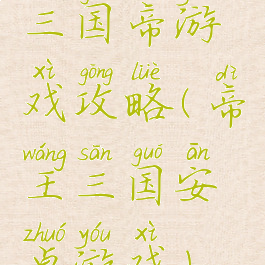 三国帝游
xì gōng lüè dì
戏攻略(帝
wáng sān guó ān
王三国安
zhuó yóu xì
卓游戏)